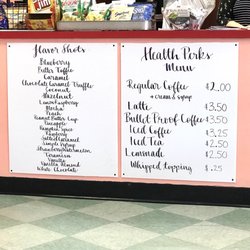 Flavor Shots
Blueberry
Butter Toffee
Caramel
Chocolate Caramel Truffle
Coconut
Hazelnut
Lemon Raspberry
Mocha
Peach
Peanut Butter Cup
Pineapple
Pumpkin Spice
Raspberry
Salted Caramel
Simple Syrup
Strawberry Watermelon
Tiramisu
Vanilla
Vanilla Almond
White Chocolate
Health Perks
Menu
Regular Coffee $2.00
+ cream & syrup
Latte $3.50
Bullet Proof Coffee $3.50
Iced Coffee $3.25
Iced Tea $2.50
Lemonade $2.50
Whipped topping $.25